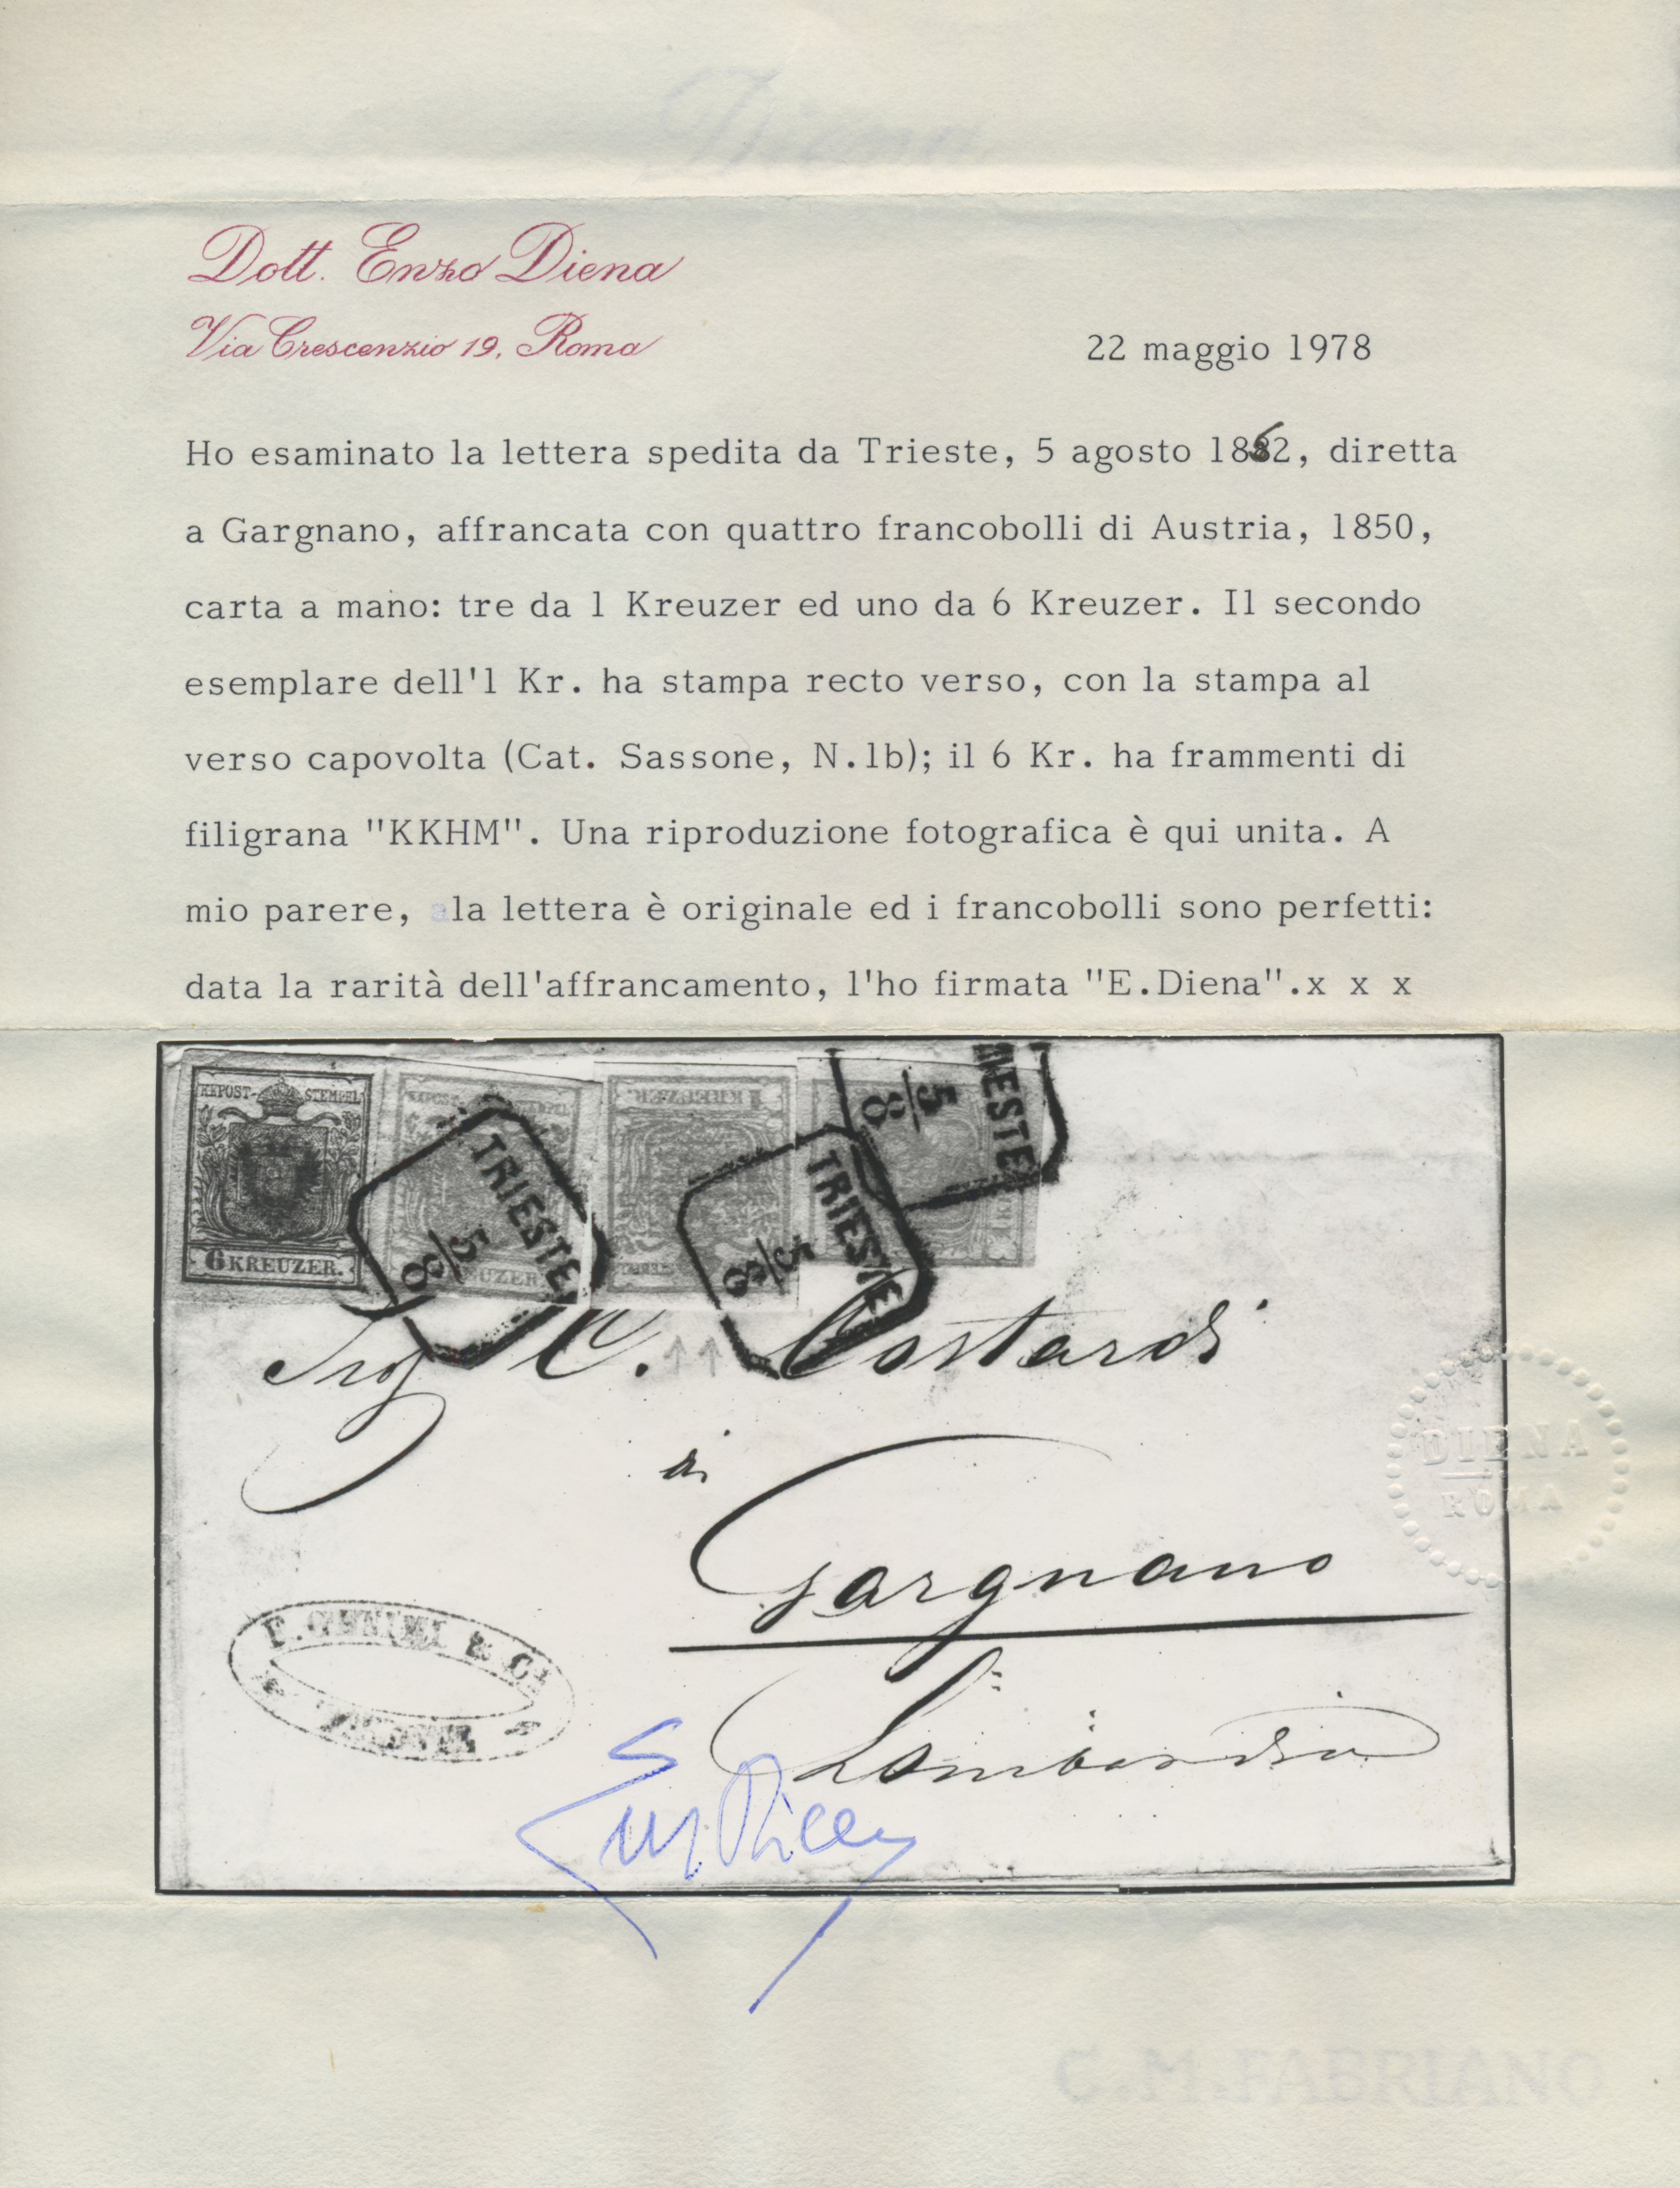 Diena
Dott. Enzo Diena
Via Crescenzio 19, Roma
22 maggio 1978
Ho esaminato la lettera spedita da Trieste, 5 agosto 1852, diretta
a Gargnano, affrancata con quattro francobolli di Austria, 1850,
carta a mano: tre da 1 Kreuzer ed uno da 6 Kreuzer. Il secondo
esemplare dell'1 Kr. ha stampa recto verso, con la stampa al
verso capovolta (Cat. Sassone, N.1b); il 6 Kr. ha frammenti di
filigrana "KKHM". Una riproduzione fotografica è qui unita. A
mio parere, la lettera è originale ed i francobolli sono perfetti:
data la rarità dell'affrancamento, l'ho firmata "E.Diena".x x x
KKPOST-STEMPEL
6 KREUZER.
TRIESTE
5/8
KREUZER.
TRIESTE
5/8
RIESTE
5/8
C. Costardi
a
Gargnano
Lombardia
& C?
DIENA
ROMA
C.M.FABRIANO